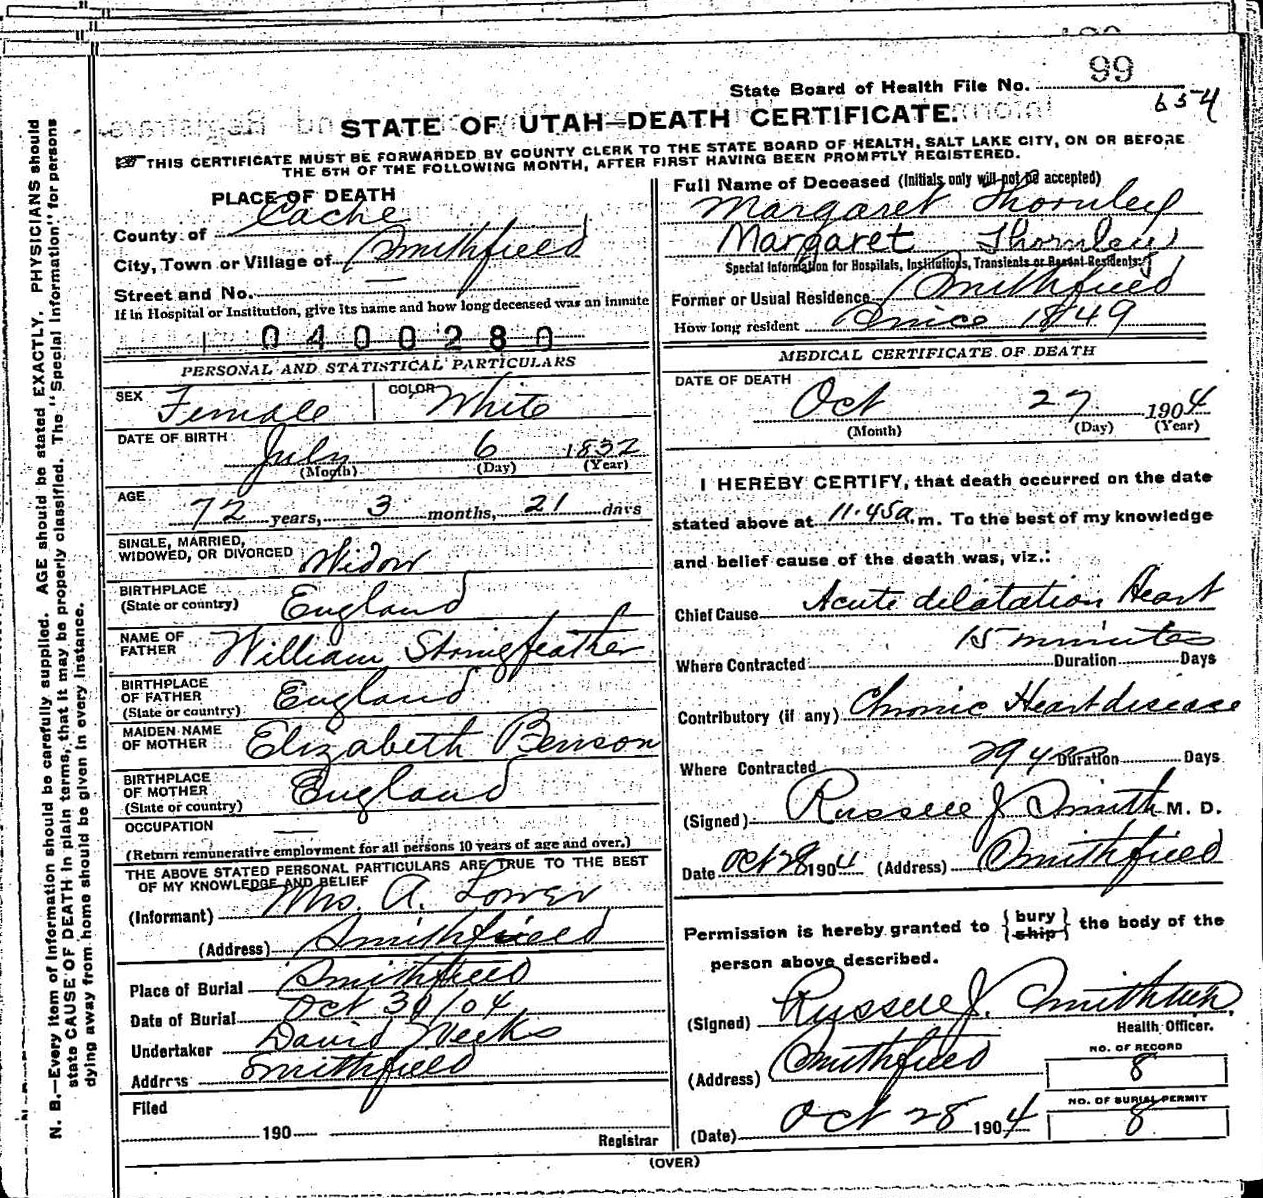 State Board of Health File No. 99
654
STATE OF UTAH—DEATH CERTIFICATE.
THIS CERTIFICATE MUST BE FORWARDED BY COUNTY CLERK TO THE STATE BOARD OF HEALTH, SALT LAKE CITY, ON OR BEFORE
THE 5TH OF THE FOLLOWING MONTH, AFTER FIRST HAVING BEEN PROMPTLY REGISTERED.
PLACE OF DEATH
County of Cache
City, Town or Village of Smithfield
Street and No. —
If in Hospital or Institution, give its name and how long deceased was an inmate
0400280
PERSONAL AND STATISTICAL PARTICULARS
SEX Female COLOR White
DATE OF BIRTH July 6 1832
(Month) (Day) (Year)
AGE 72 years, 3 months, 21 days
SINGLE, MARRIED,
WIDOWED, OR DIVORCED Widow
BIRTHPLACE
(State or country) England
NAME OF
FATHER William Stonigfeather
BIRTHPLACE
OF FATHER
(State or country) England
MAIDEN NAME
OF MOTHER Elizabeth Benson
BIRTHPLACE
OF MOTHER
(State or country) England
OCCUPATION —
(Return remunerative employment for all persons 10 years of age and over.)
THE ABOVE STATED PERSONAL PARTICULARS ARE TRUE TO THE BEST
OF MY KNOWLEDGE AND BELIEF
(Informant) Mrs. A. Lower
(Address) Smithfield
Place of Burial Smithfield
Date of Burial Oct 30/04
Undertaker David Weeks
Address Smithfield
Filed
190
Registrar
Full Name of Deceased (Initials only will not be accepted)
Margaret Thornley
Margaret Thornley
Special Information for Hospitals, Institutions, Transients or Recent Residents:
Former or Usual Residence Smithfield
How long resident Since 1849
MEDICAL CERTIFICATE OF DEATH
DATE OF DEATH
Oct 27 1904
(Month) (Day) (Year)
I HEREBY CERTIFY, that death occurred on the date
stated above at 11.45a.m. To the best of my knowledge
and belief cause of the death was, viz.:
Chief Cause Acute delatation Heart
15 minutes
Where Contracted Duration Days
Contributory (if any) Chronic Heart disease
Where Contracted Duration Days
(Signed) Russell J Smith M. D.
Date Oct 28 1904 (Address) Smithfield
Permission is hereby granted to {bury ship} the body of the
person above described.
(Signed) Russell J. Smith
Health Officer.
(Address) Smithfield
NO. OF RECORD
8
NO. OF BURIAL PERMIT
8
(Date) Oct 28 1904
(OVER)
N. B.—Every item of information should be carefully supplied. AGE should be stated EXACTLY. PHYSICIANS should
state CAUSE OF DEATH in plain terms, that it may be properly classified. The "Special Information" for persons
dying away from home should be given in every instance.